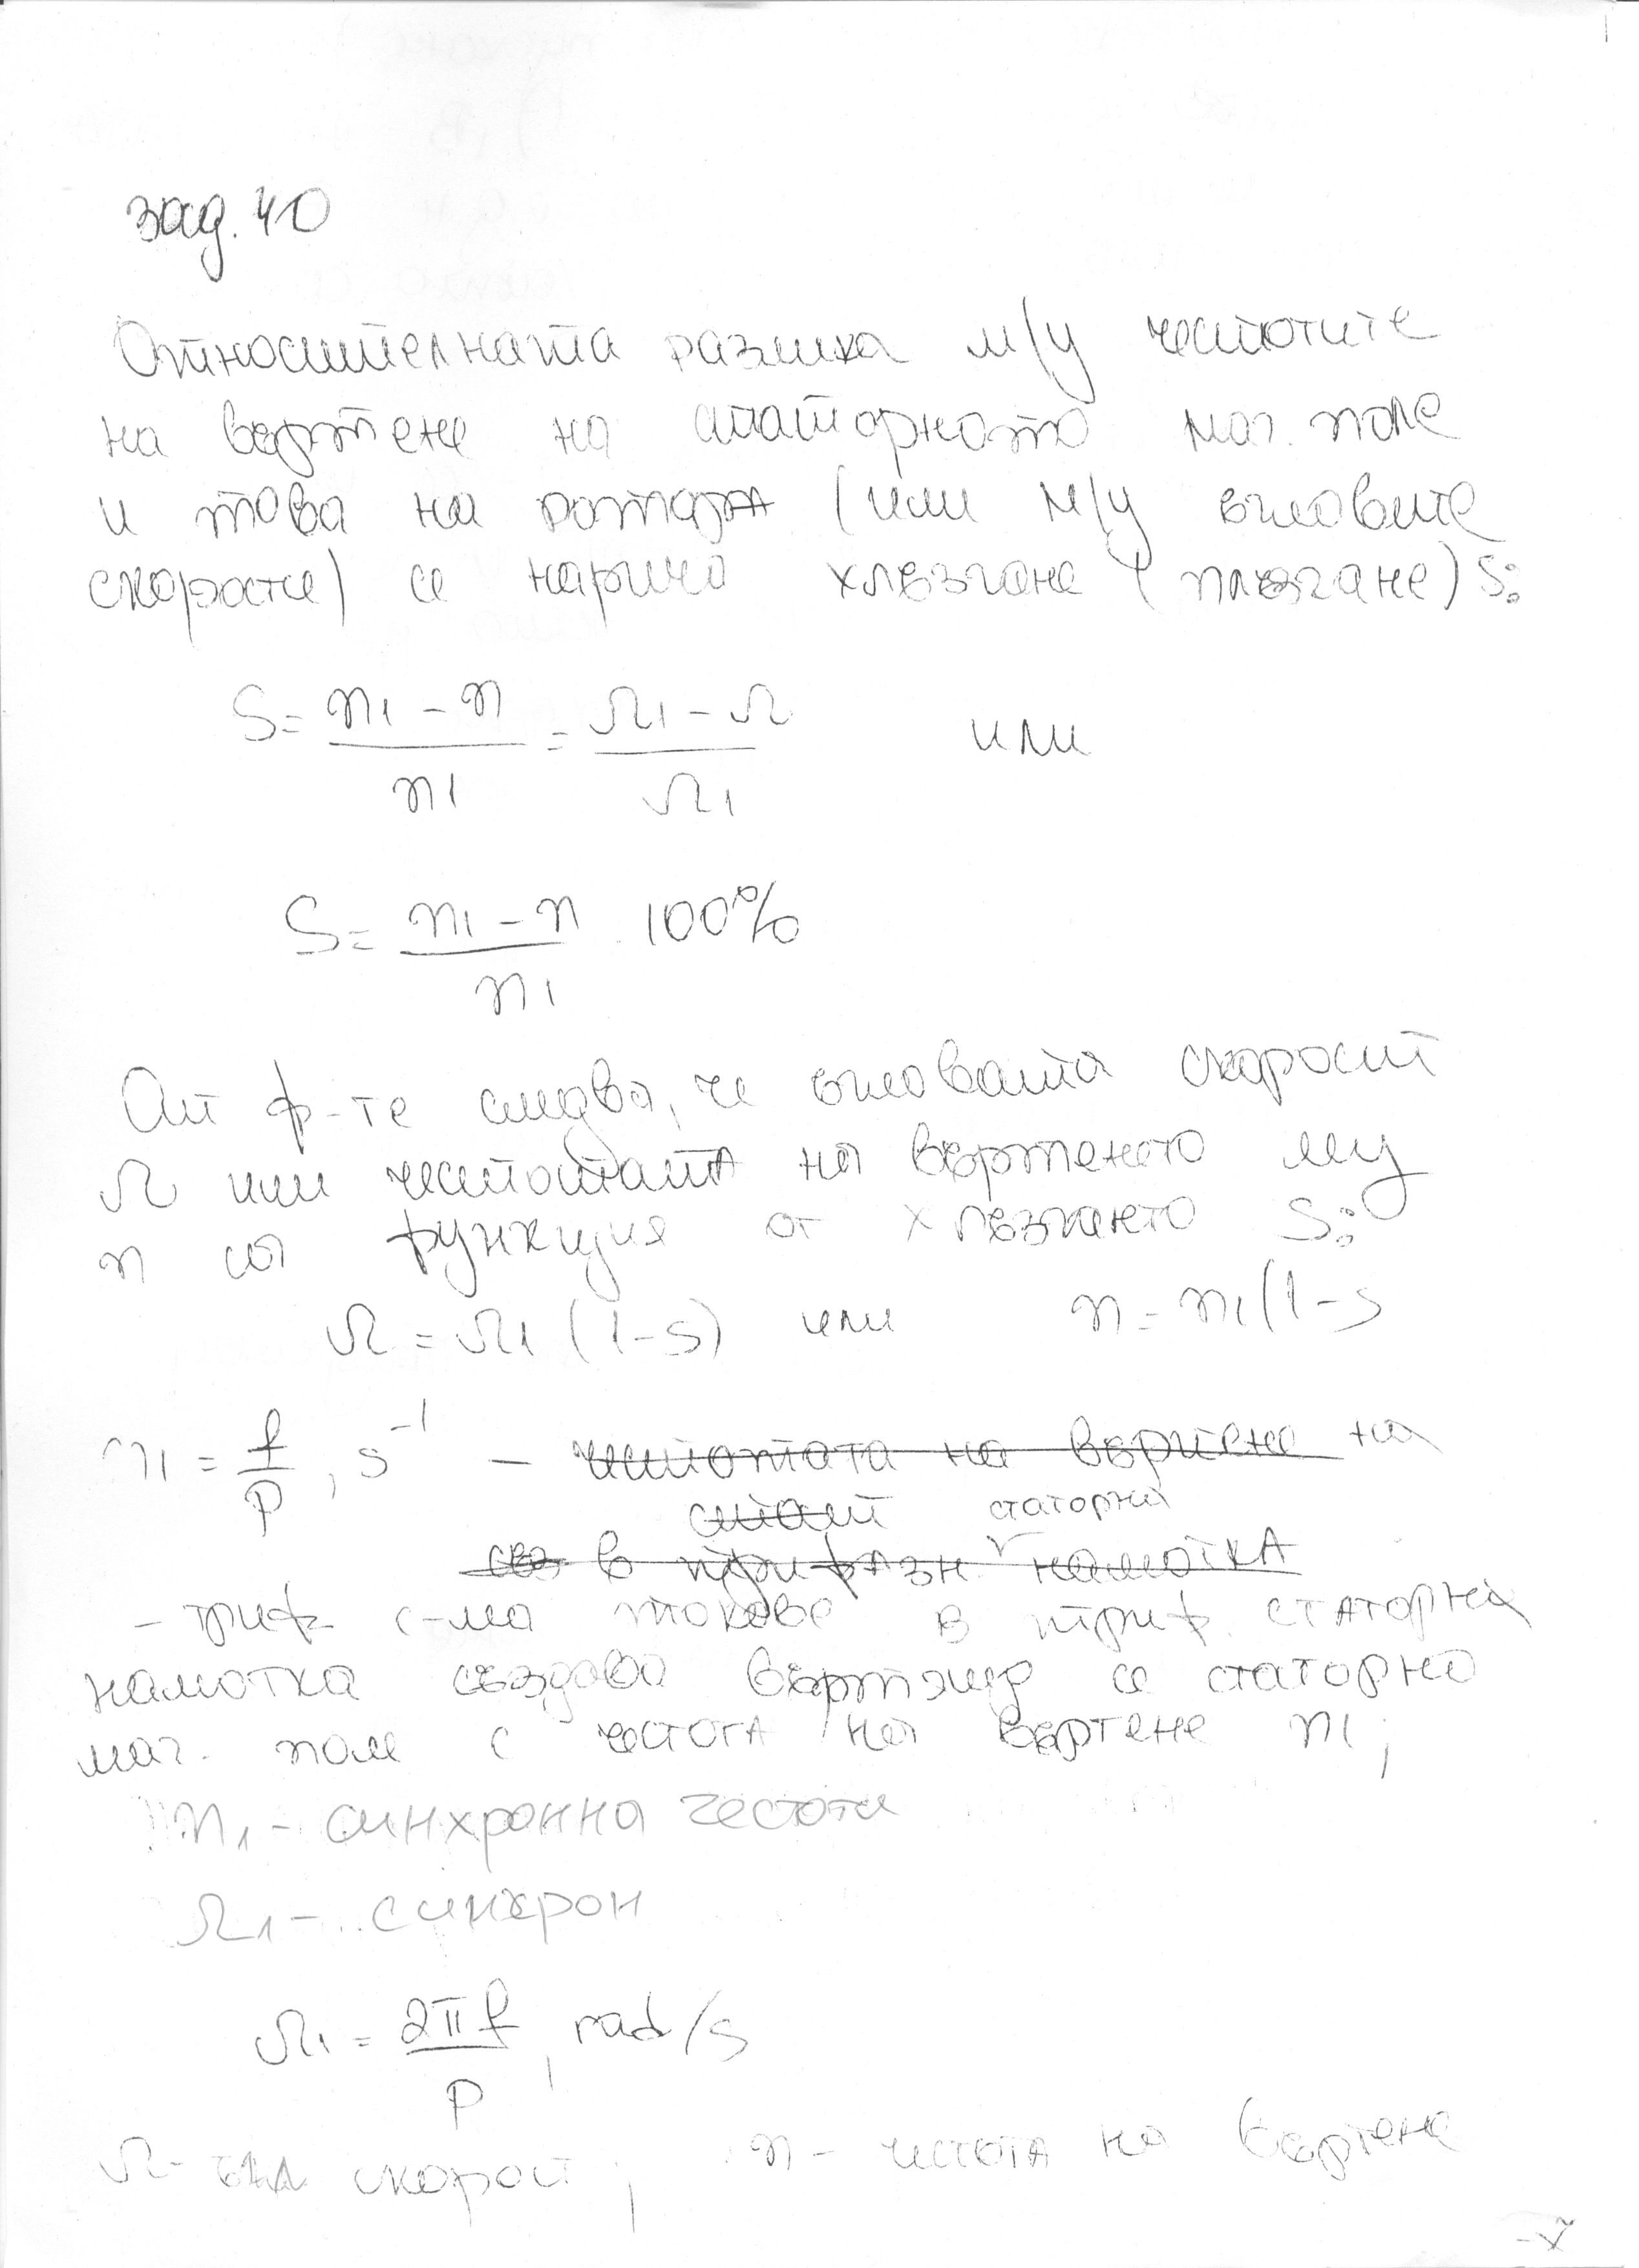 зад. 40
Относителната разлика м/у честотите
на въртене на статорното маг. поле
и това на ротора (или м/у ъгловите
скорости) се нарича хлъзгане (плъзгане) S:
S = (n1 - n) / n1 = (Ω1 - Ω) / Ω1 или
S = (n1 - n) / n1 . 100%
От ф-те следва, че ъгловата скорост
Ω или честотата на въртенето му
n са функция от хлъзгането S:
Ω = Ω1 (1-S) или n = n1(1-s
n1 = f / p, s⁻¹ - честотата на въртене на
стат статорна
в трифазн намотка
- триф с-ма токове в триф. статорна
намотка създава въртящо се статорно
маг. поле с честота на въртене n1;
n1 - синхронна честота
Ω1 - .. синхрон
Ω1 = 2πf / p, rad/s
Ω - ъгл скорост; n - честота на въртене